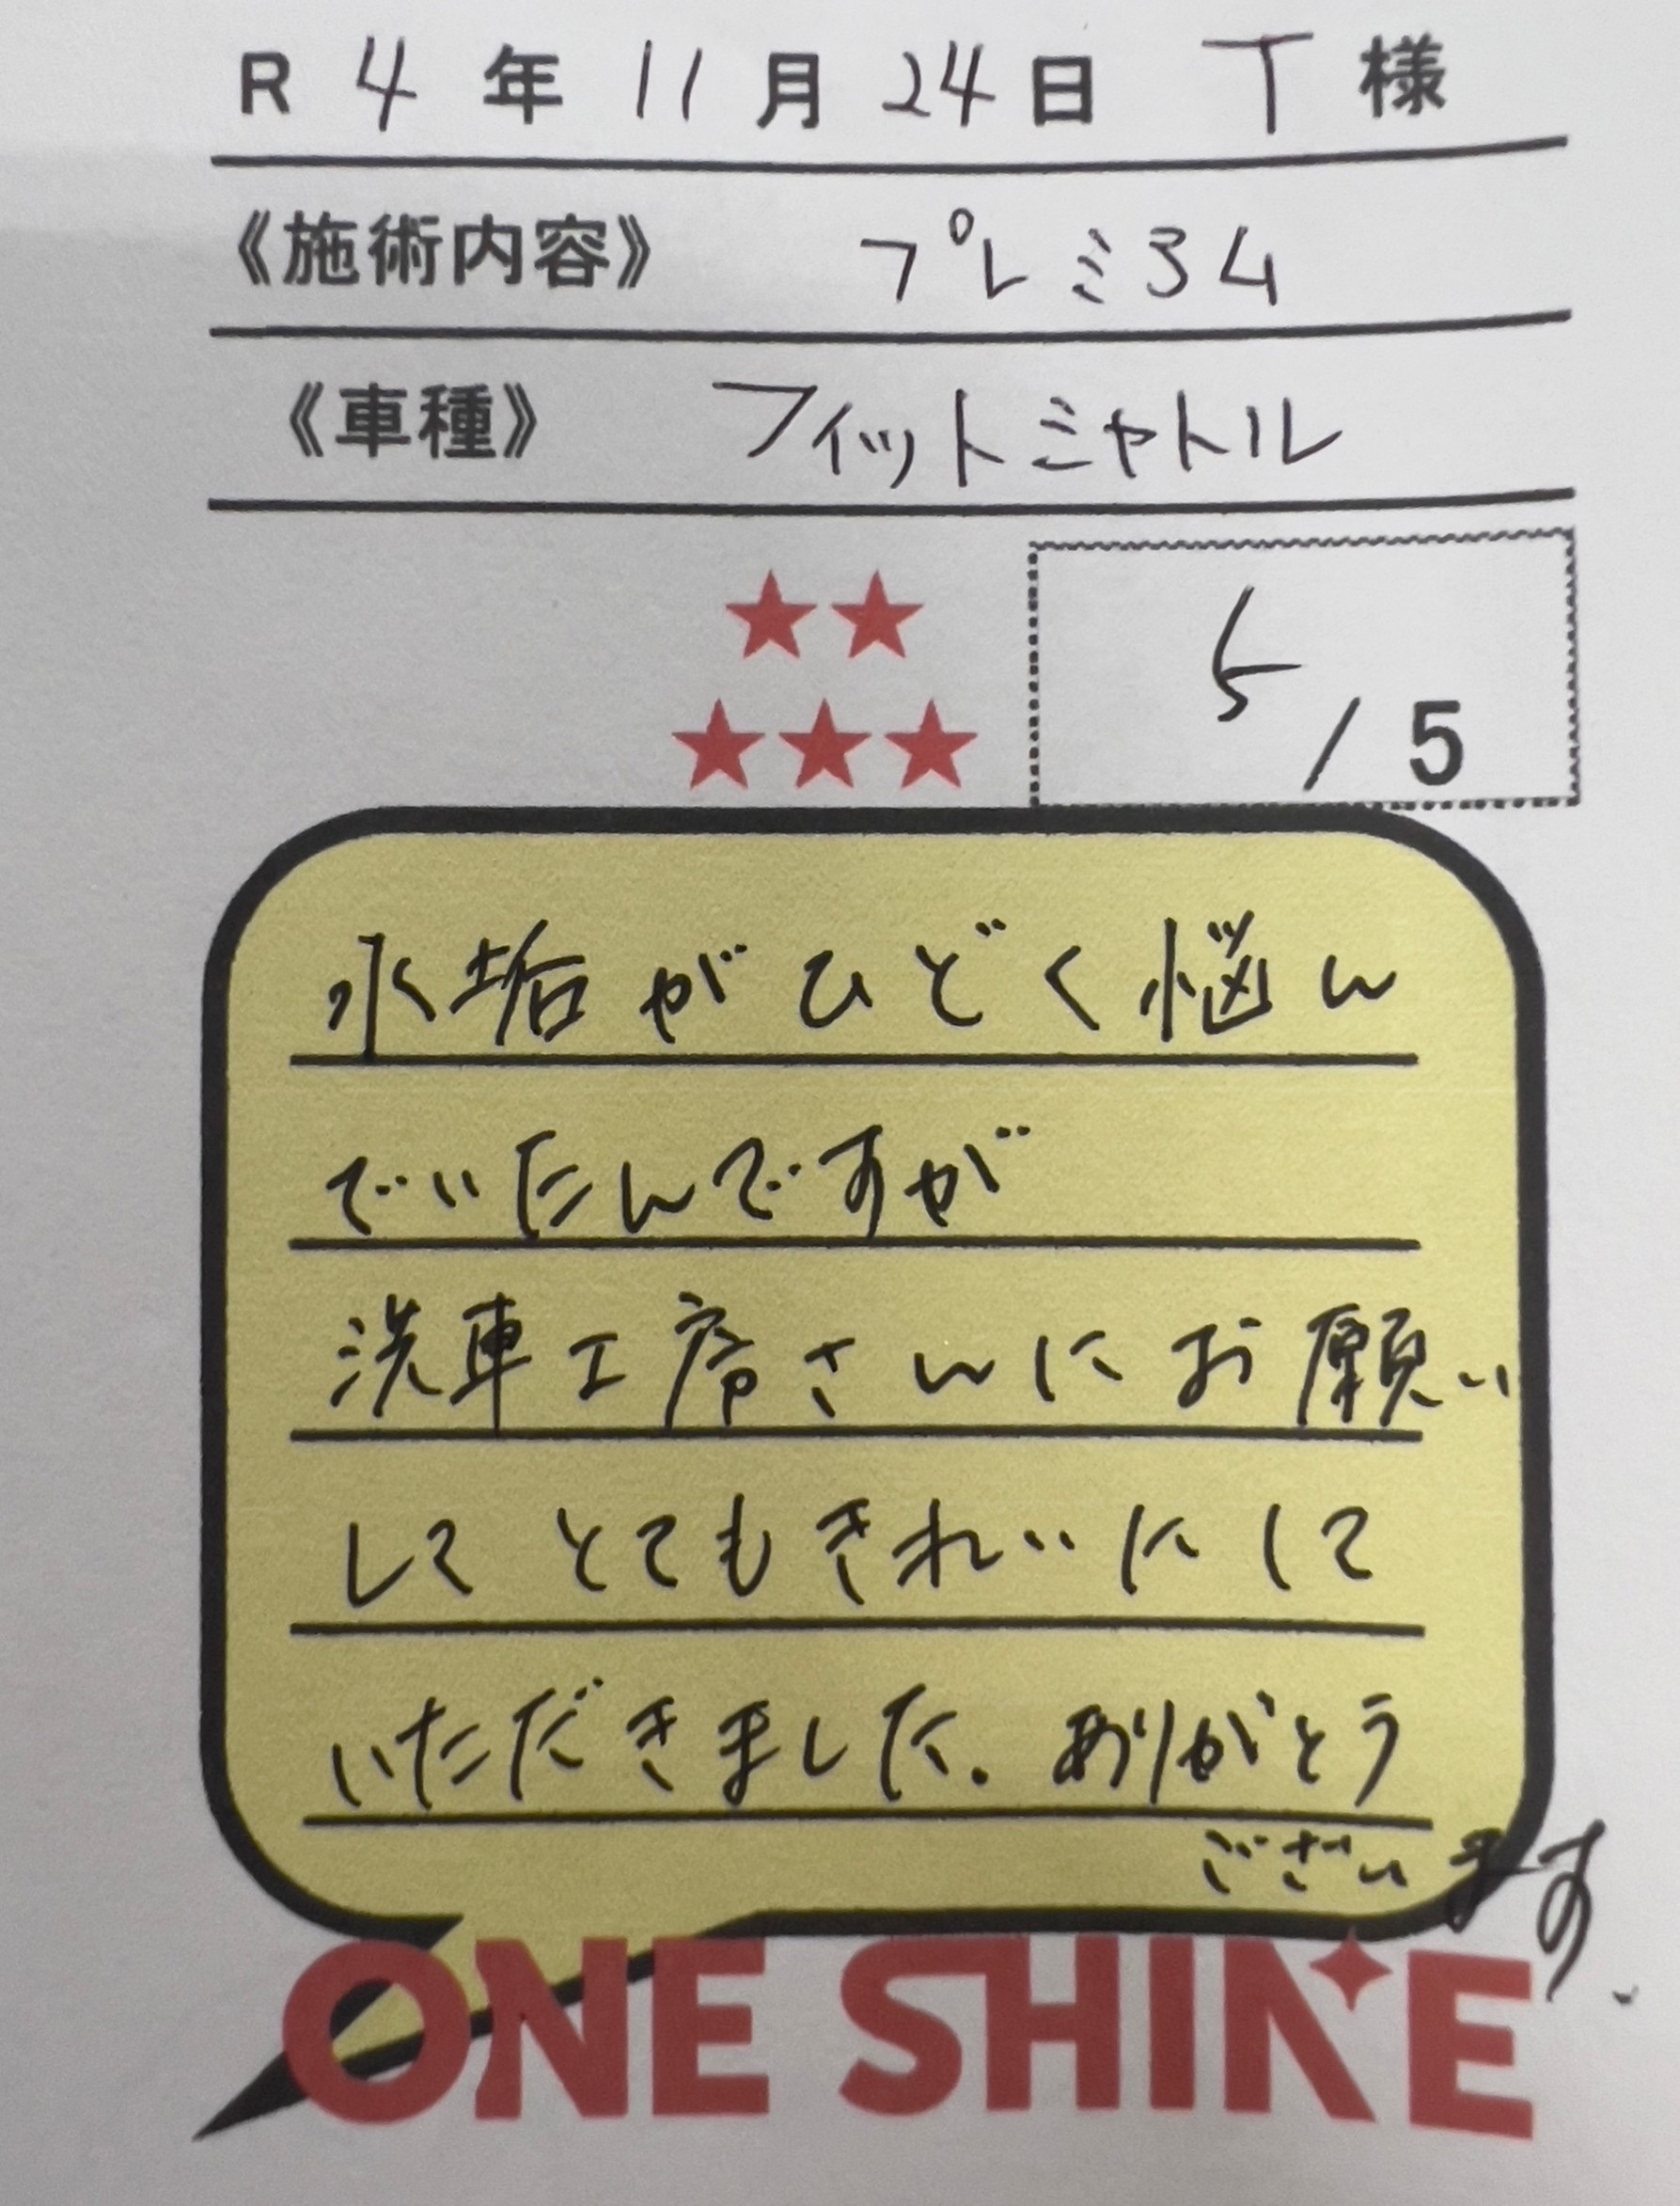 R 4 年 11 月 24 日 T 様
《施術内容》 プレミアム
《車種》 フィットシャトル
5 / 5
水垢がひどく悩ん
でいたんですが
洗車工房さんにお願い
して とてもきれいにして
いただきました。ありがとう
ございます.
ONE SHINE